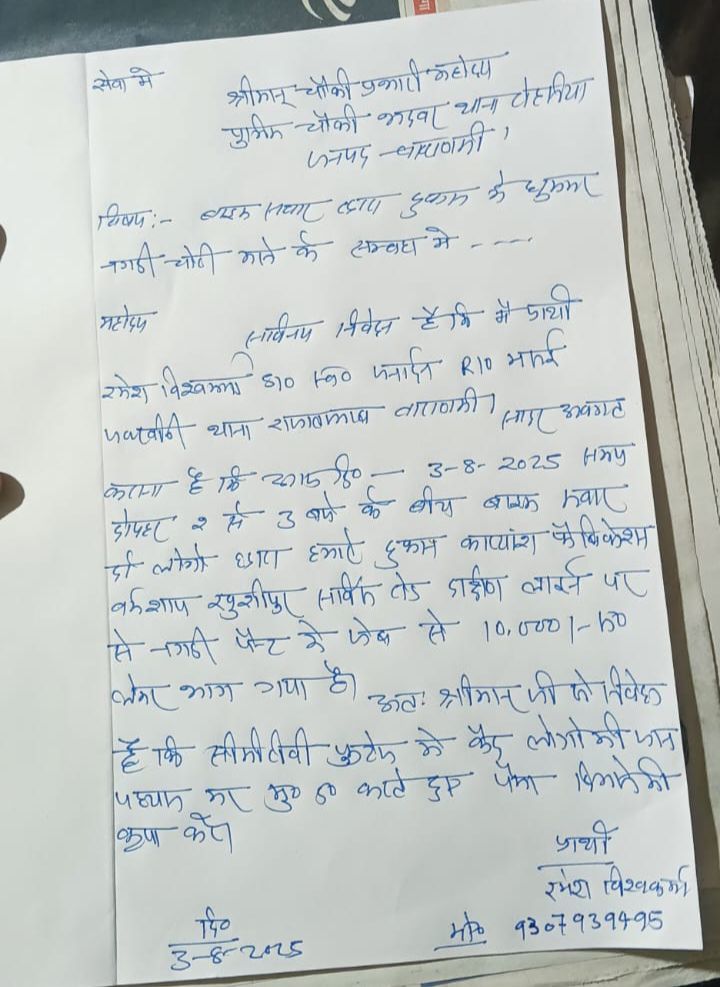 सेवा मे
श्रीमान् चौकी प्रभारी महोदय
पुलिस चौकी भदवर थाना रोहनिया
जनपद - वाराणसी।
विषय :- बाइक सवार द्वारा दुकान मे घुसकर
नगदी चोरी करने के सम्बन्ध मे - - —
महोदय
सविनय निवेदन है कि मै प्रार्थी
रमेश विश्वकर्मा S/o स्व० जनार्दन R/o
थाना वाराणसी। सादर अवगत
कराना है कि आज दि० — 3-8-2025 समय
दोपहर २ से 3 बजे के बीच बाइक सवार
दो लोगो द्वारा हमारे दुकान काव्यांश फैब्रिकेशन
वर्कशाप खुशीपुर सर्विस रोड दक्षिण लाईन पर
से नगदी पैन्ट के जेब से 10,000/- रू०
लेकर भाग गया है। अतः श्रीमान् जी से निवेदन
है कि सीसीटीवी फुटेज मे कैद लोगो की जांच
पहचान कर मु० द० करते हुए पैसा दिलाने की
कृपा करें।
प्रार्थी
रमेश विश्वकर्मा
दि०
3-8-2025
मो० 9307939495